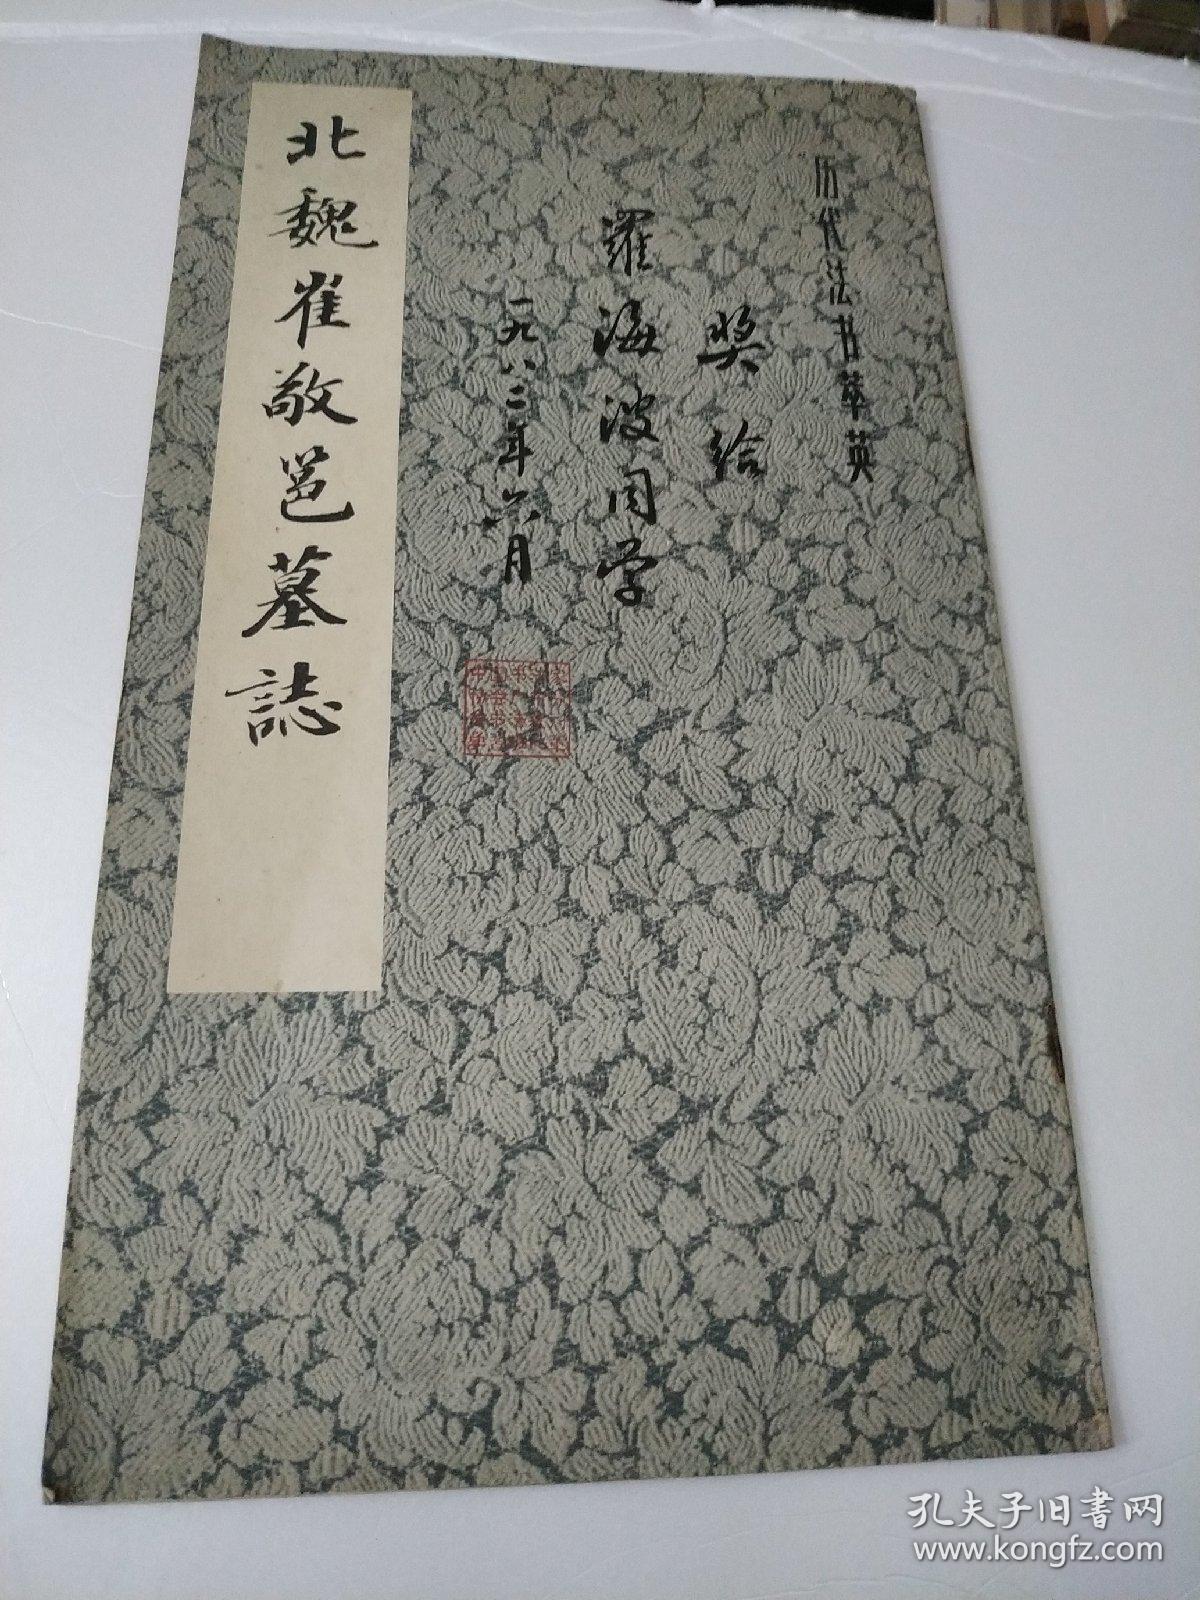 历代法书萃英
奖给
羅海波同学
一九八二年六月
北魏崔敬邕墓誌
孔夫子旧书网
www.kongfz.com